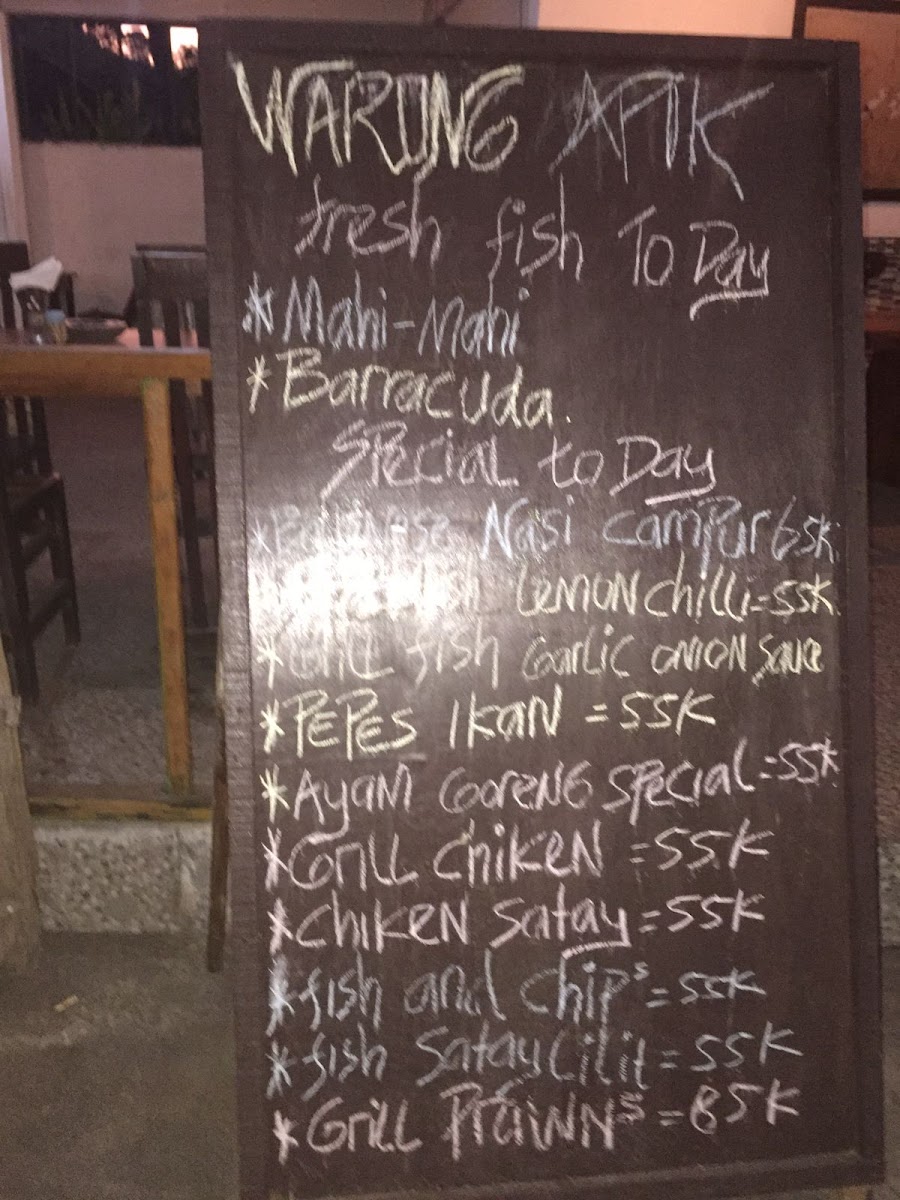 WARUNG APIK
fresh fish To Day
* Mahi-Mahi
* Barracuda.
Special to Day
* Balinese Nasi campur 65K
fish lemon chilli = 55K
* Grill fish Garlic onion sauce
* PEPES IKAN = 55K
* Ayam Goreng special = 55K
* Grill chiken = 55K
* chiken satay = 55K
* fish and chips = 55K
* fish Satay Lilit = 55K
* Grill Prawnns = 85K